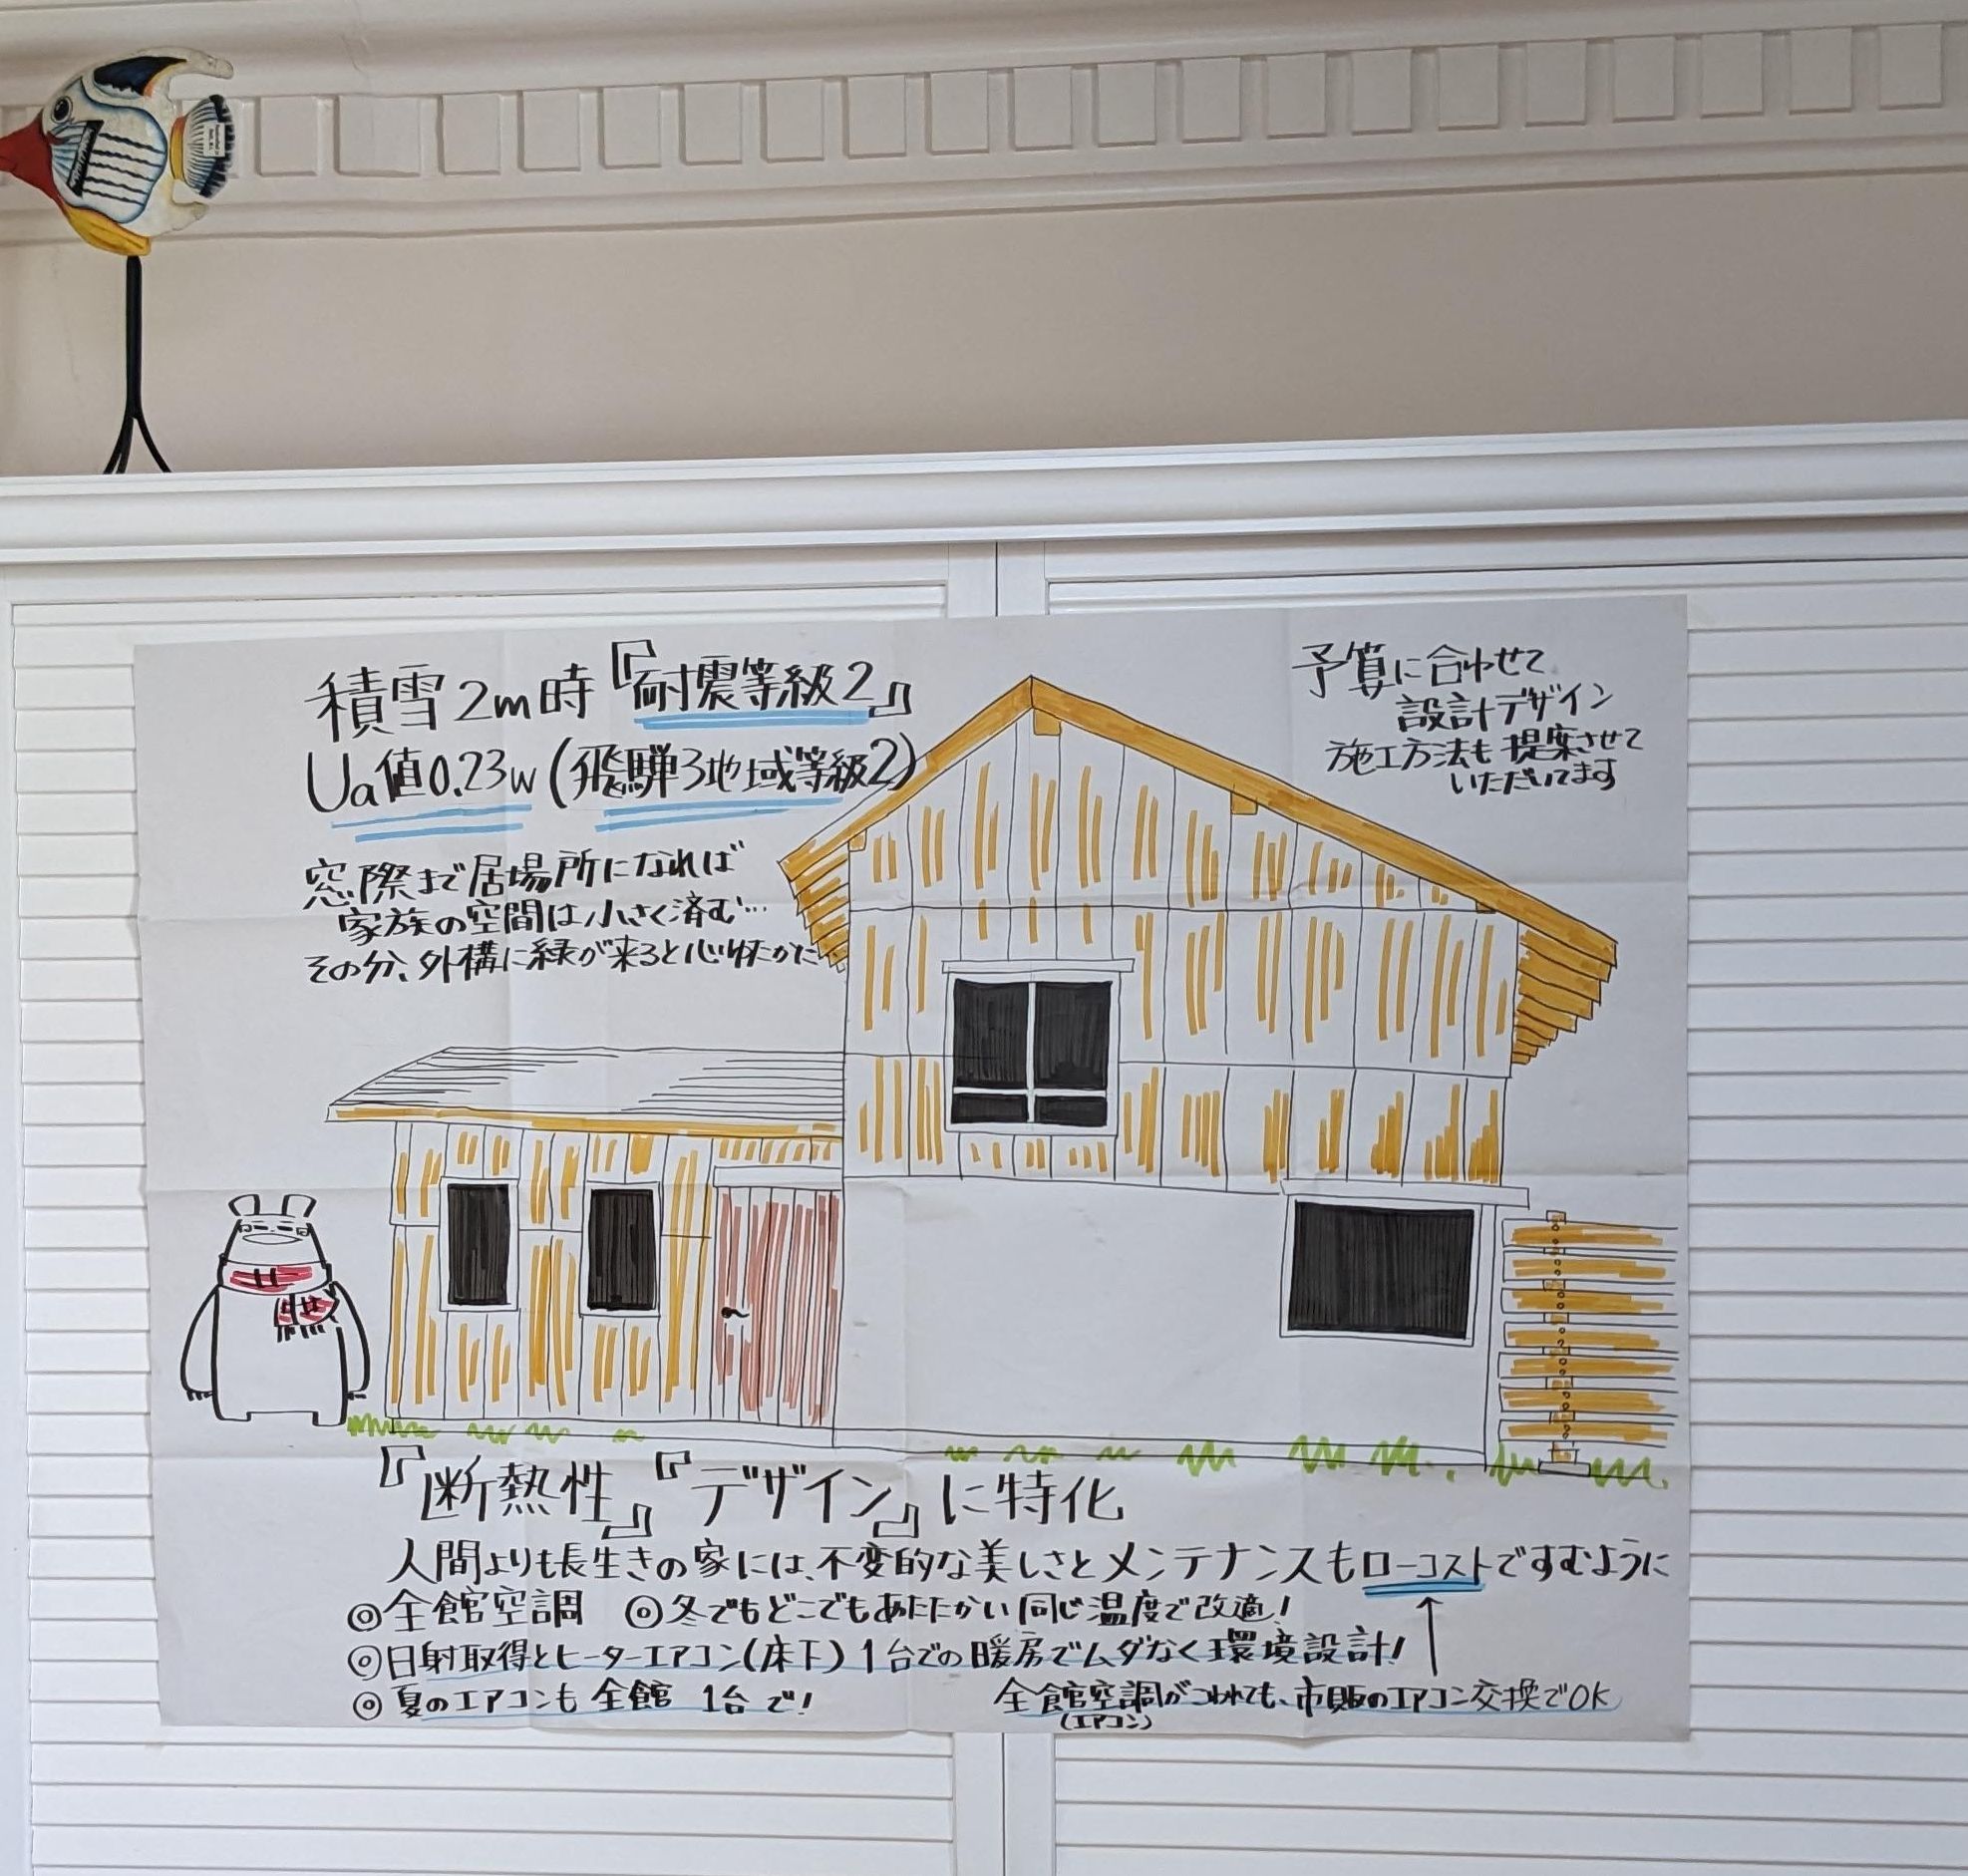 積雪2m時『耐震等級2』
Ua値0.23w(飛騨3地域等級2)
窓際まで居場所になれば
家族の空間は小さく済む…
その分、外構に緑が来ると心ゆたかに
予算に合わせて
設計デザイン
施工方法も提案させて
いただいてます
『断熱性』『デザイン』に特化
人間よりも長生きの家には、不変的な美しさとメンテナンスもローコストですむように
◎全館空調 ◎冬でもどこでもあたたかい同じ温度で改適!
◎日射取得とヒーターエアコン(床下)1台での暖房でムダなく環境設計!
◎夏のエアコンも全館 1台で!
全館空調がつわれても、市販のエアコン交換でOK
(エアコン)